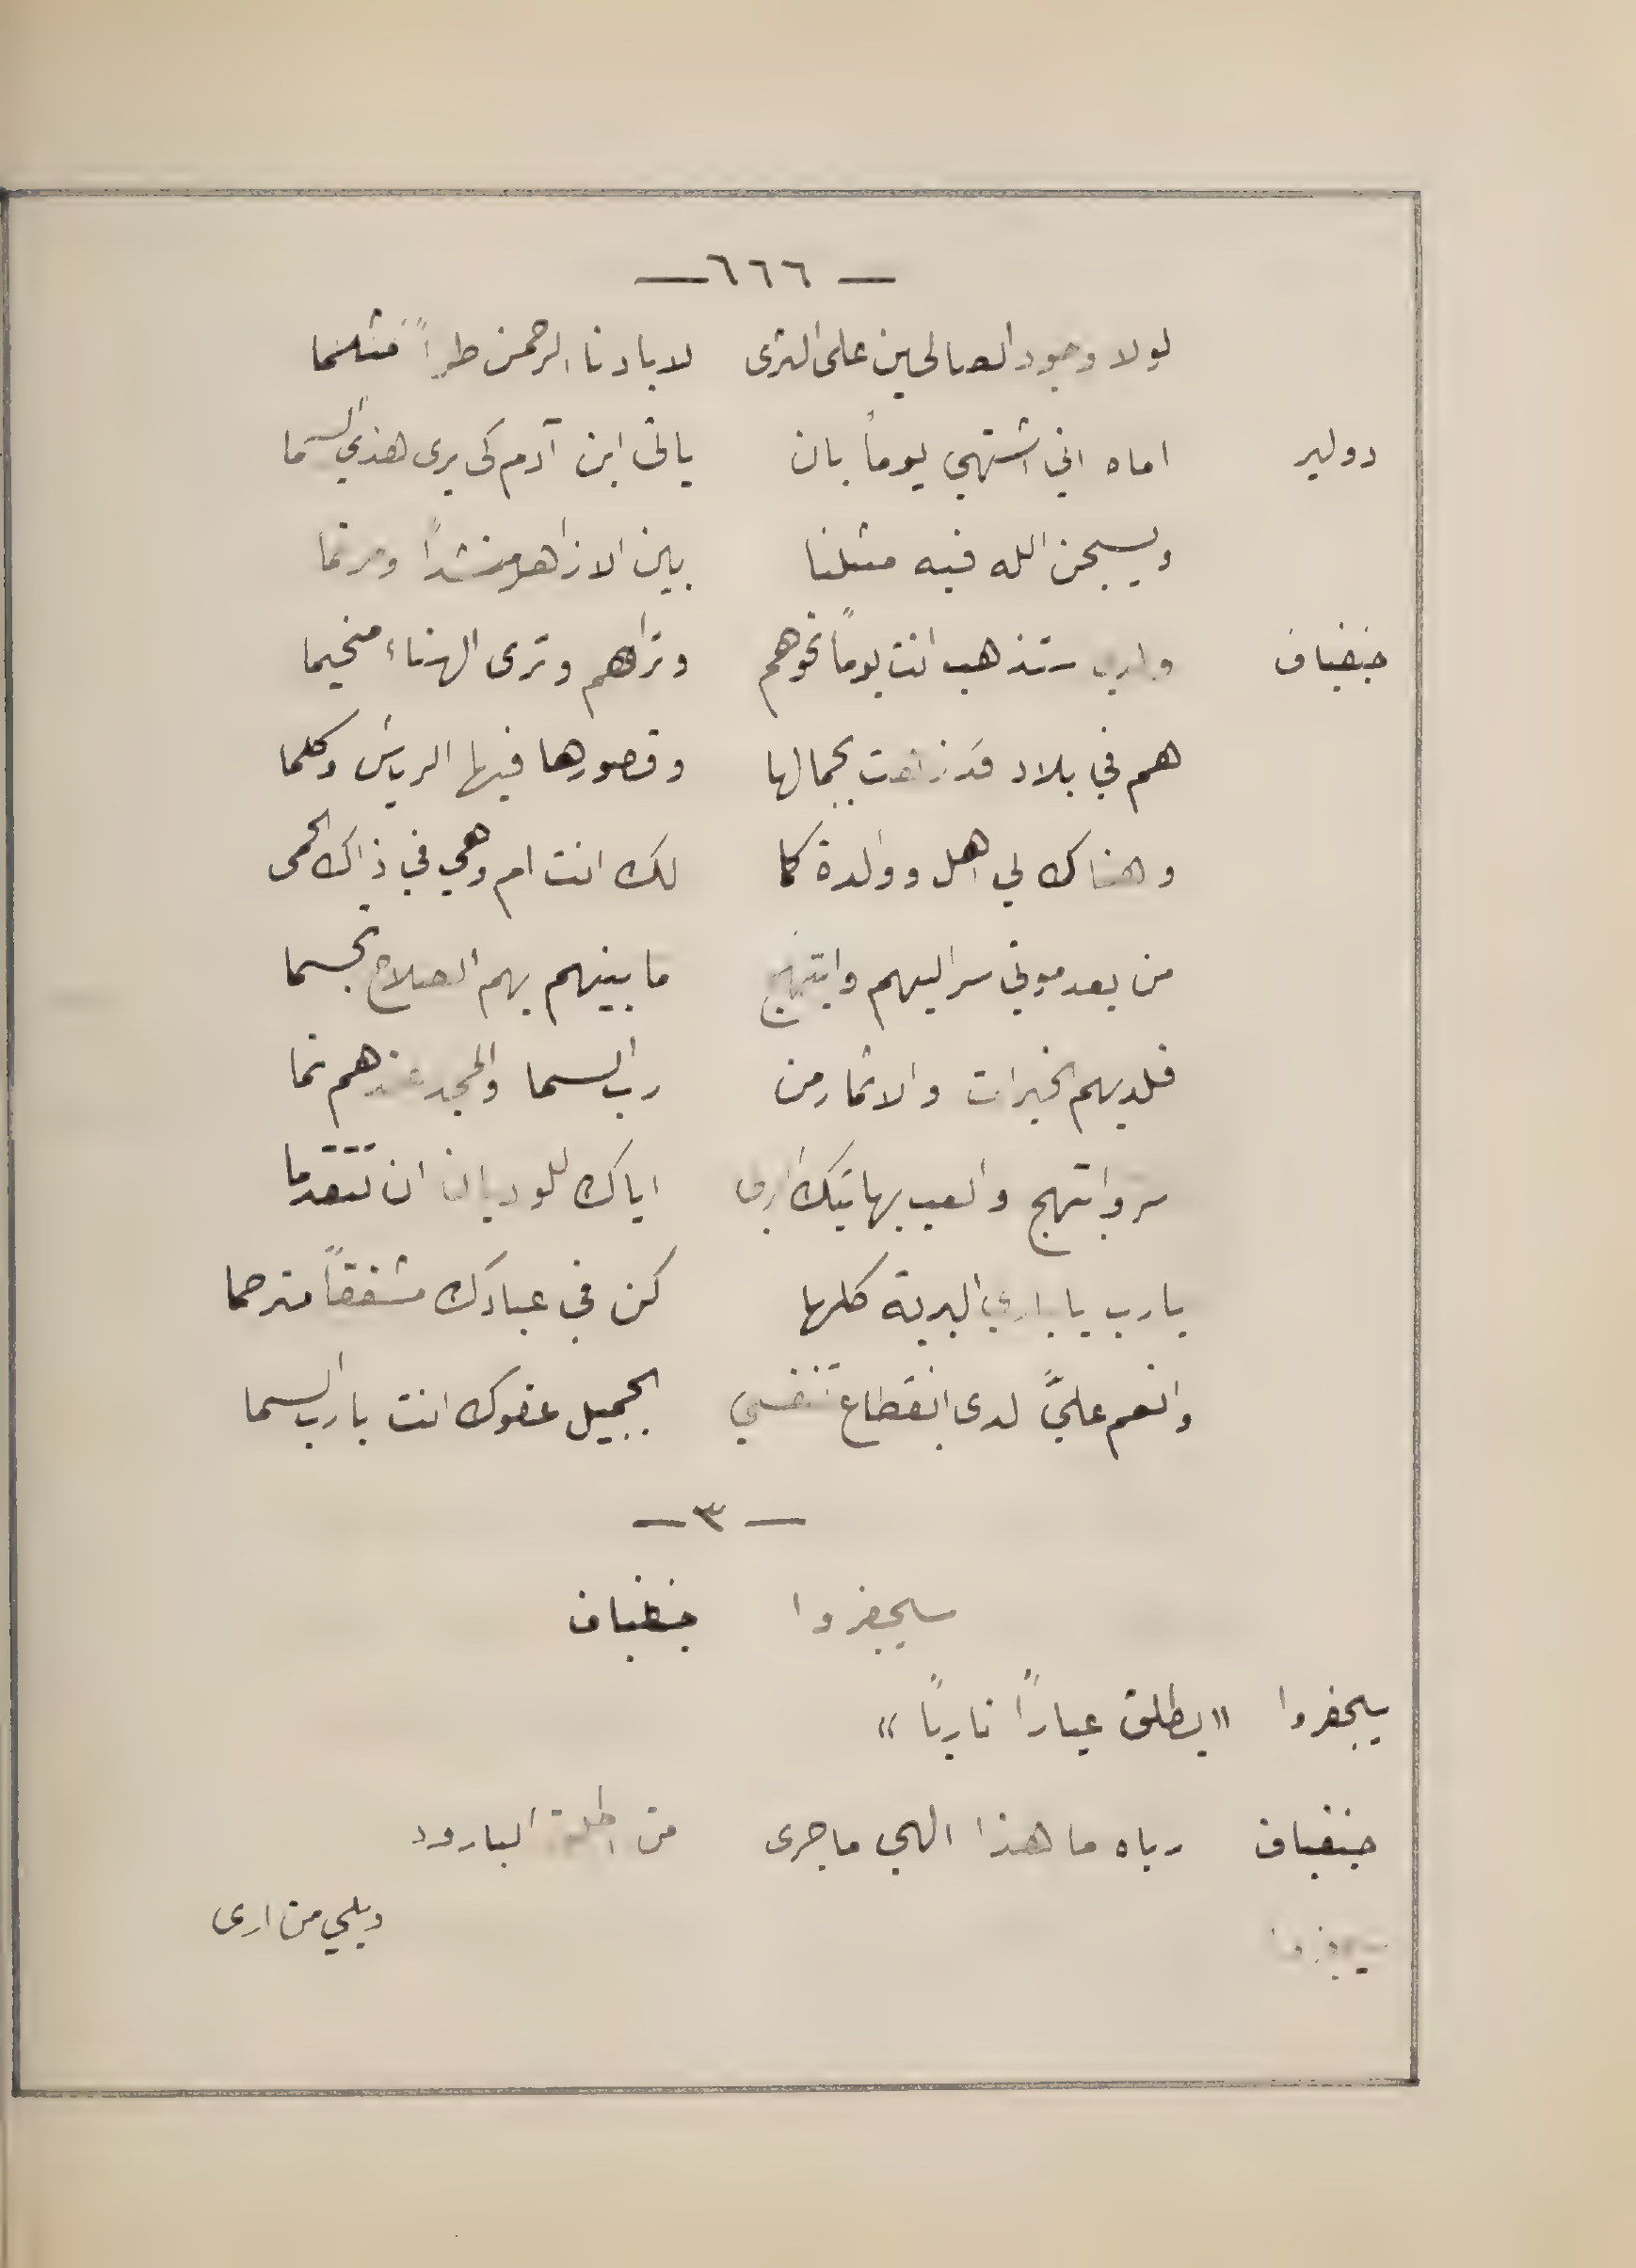 — ٦٦٦ —
لولا وجود الصالحين على الثرى لابادنا الرحمن طراً مثلما
دولير اماه اني اشتهي يوماً بان ياتى ابن آدم كى يرى هذي السما
ويسبحن الله فيه مثلنا بين الازاهر منشداً ومرنما
جنفياف ولدي ستذهب انت يوماً نحوهم وتراهم وترى الهناء مخيما
هم في بلاد قد زهت بجمالها وقصورها فيها الرياش وكلما
وهناك لي اهل ووالدة كما لك انت ام وهي في ذاك الحمى
من بعد موتي سر اليهم وابتهج ما بينهم بهم الصلاح تجسما
فلديهم الخيرات والاثمار من رب السما والمجد عندهم نما
سر وابتهج والعب بهاتيك الربى اياك للوديان ان تتقدما
يارب يا باري البرية كلها كن في عبادك مشفقاً مترحما
وانعم عليَّ لدى انقطاع تنفسي الجميل عفوك انت يارب السما
— ٣ —
سيجفروا جنفياف
سيجفروا «يطلق عياراً نارياً»
جنفياف رباه ما هذا الهي ماجرى من اطلق البارود
سيجفروا ويلي من ارى